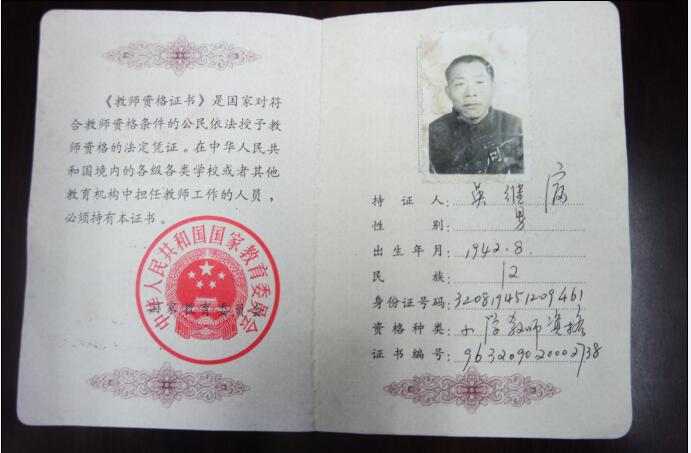 《教师资格证书》是国家对符
合教师资格条件的公民依法授予教
师资格的法定凭证。在中华人民共
和国境内的各级各类学校或者其他
教育机构中担任教师工作的人员，
必须持有本证书。
中华人民共和国国家教育委员会
国家教育委员会
持证人：英继
性别：男
出生年月：1942.8.
民族：
身份证号码：320819451209461
资格种类：小学教师资格
证书编号：963209020002738